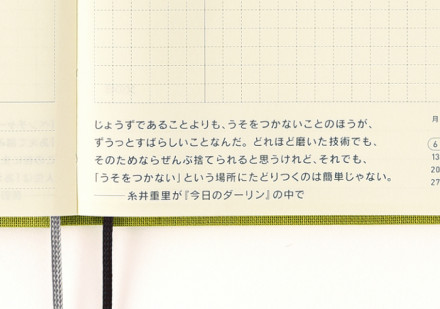 じょうずであることよりも、うそをつかないことのほうが、
ずうっとすばらしいことなんだ。どれほど磨いた技術でも、
そのためならぜんぶ捨てられると思うけれど、それでも、
「うそをつかない」という場所にたどりつくのは簡単じゃない。
——糸井重里が『今日のダーリン』の中で
月
6
13
20
27